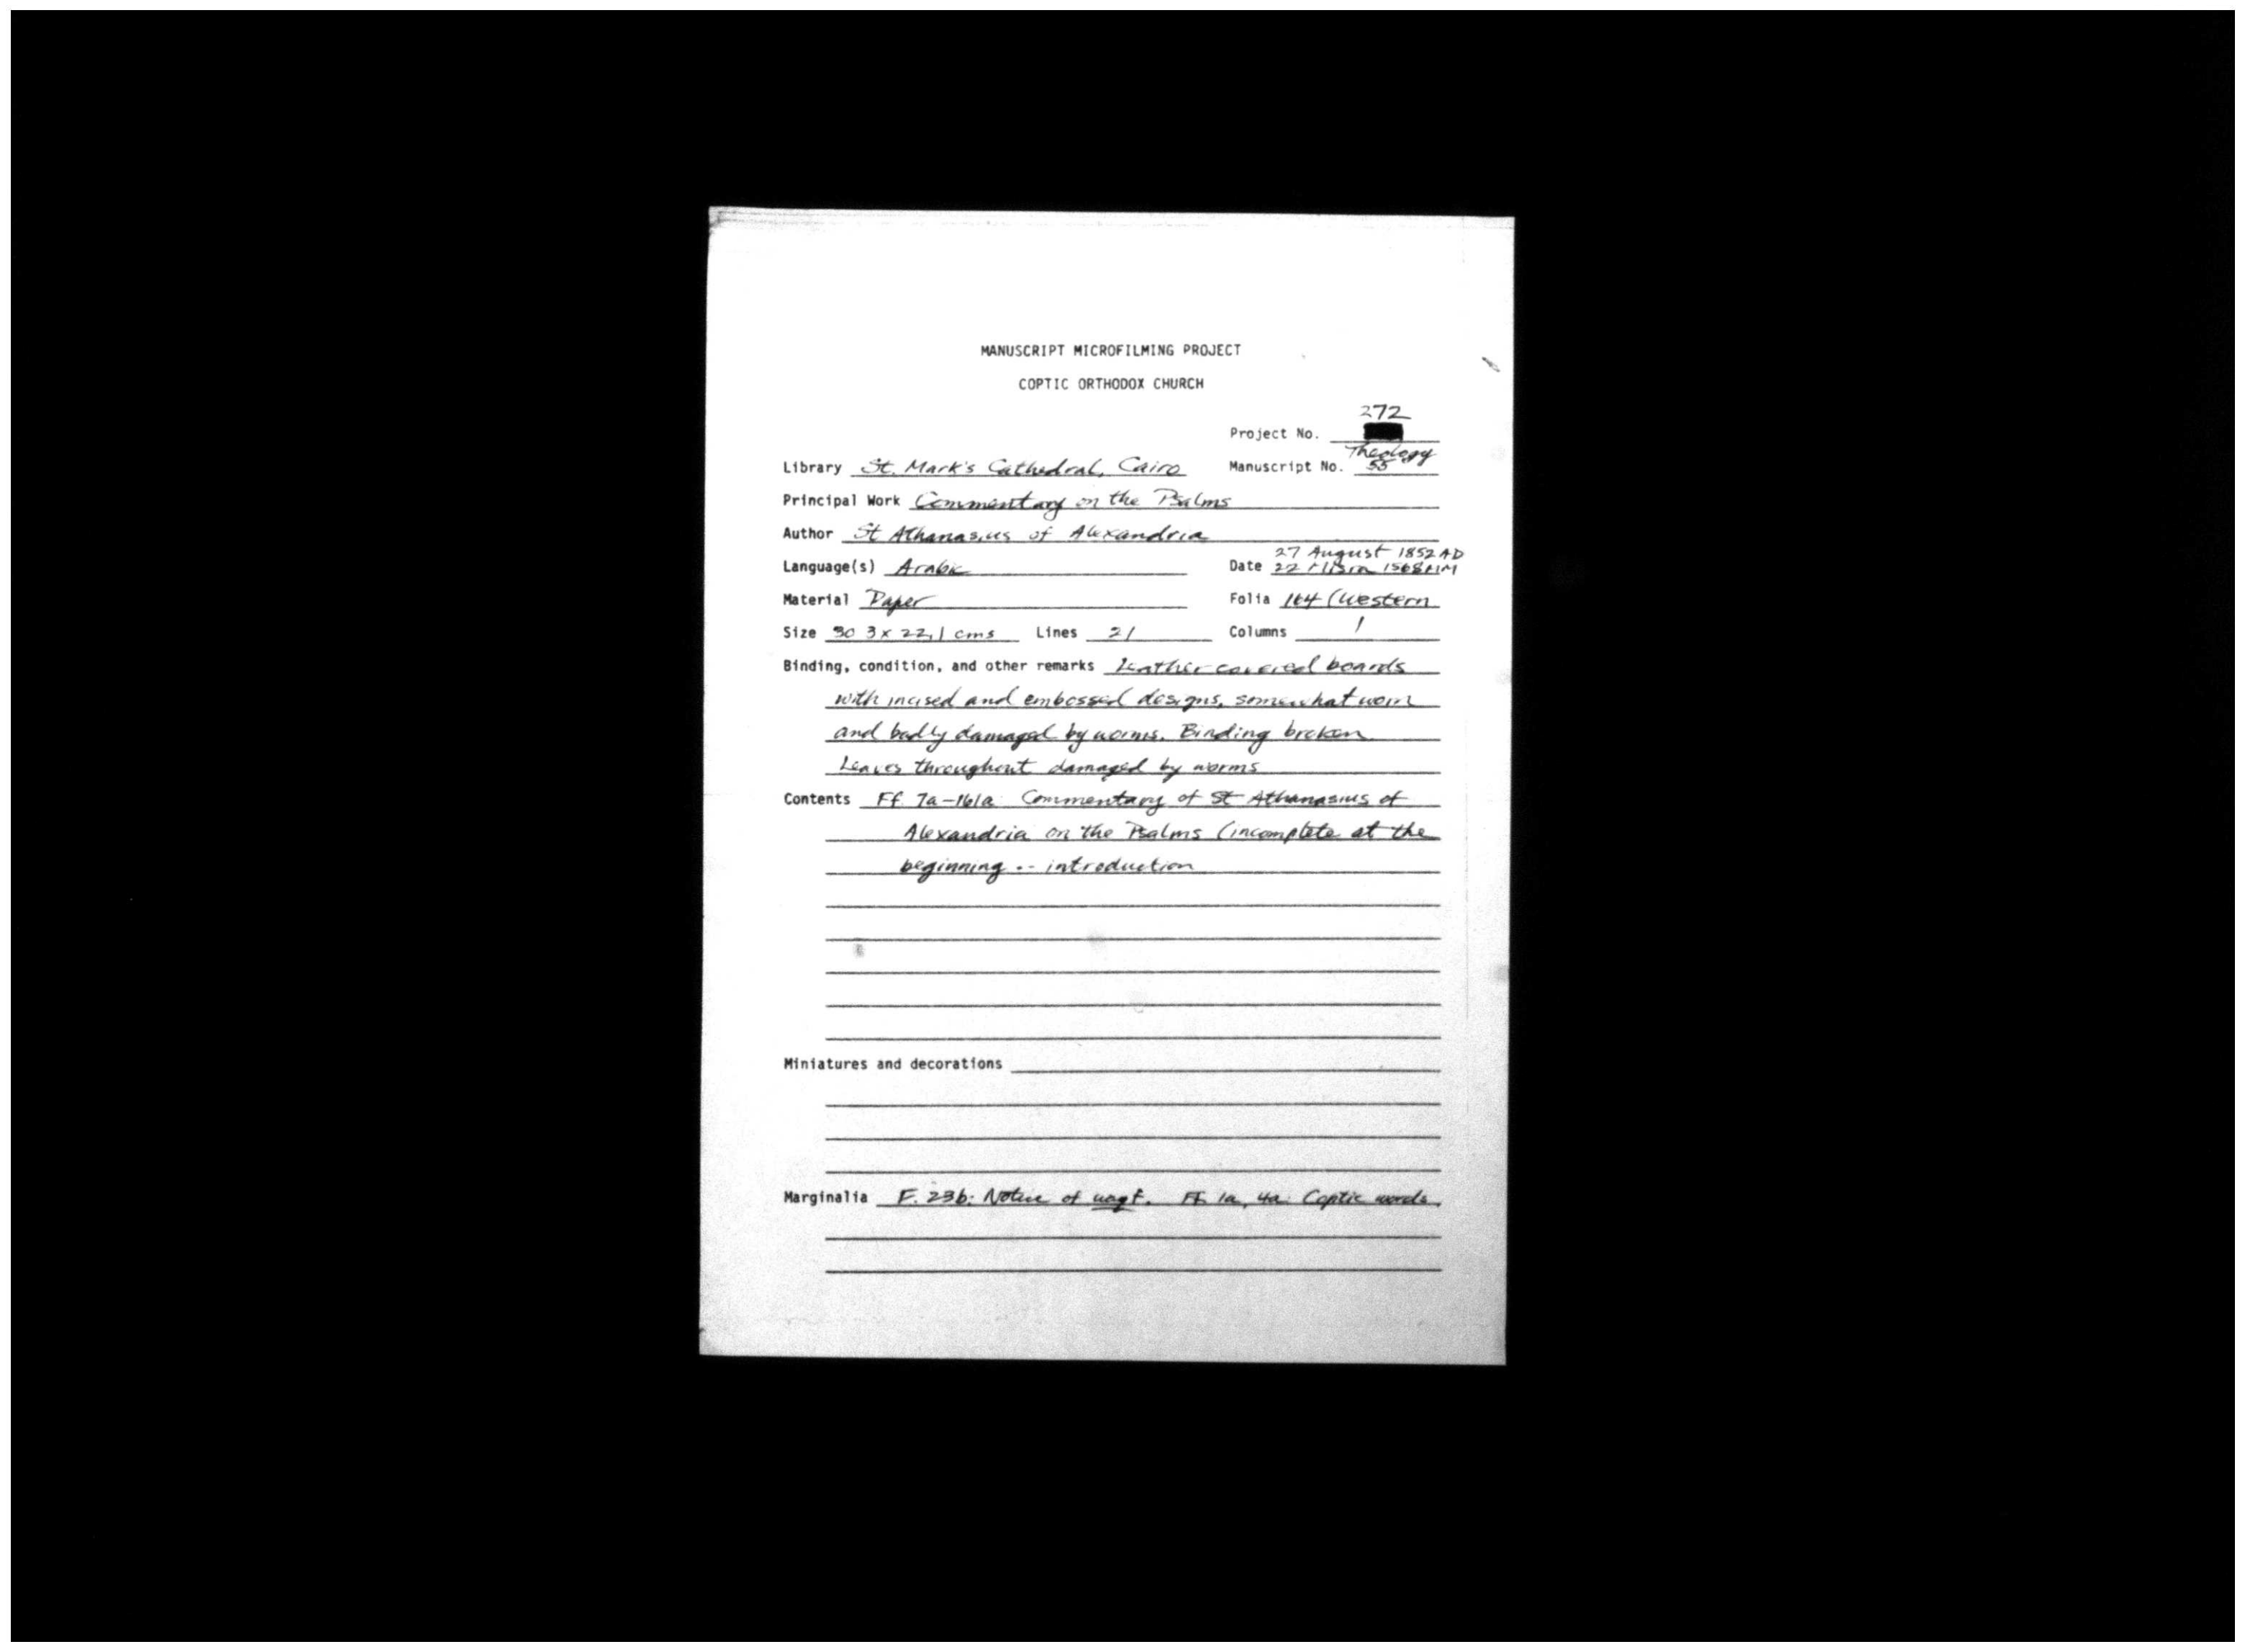 MANUSCRIPT MICROFILMING PROJECT
COPTIC ORTHODOX CHURCH
272
Project No.
Theology
Library St. Mark's Cathedral, Cairo Manuscript No. 55
Principal Work Commentary on the Psalms
Author St Athanasius of Alexandria
27 August 1852 AD
Language(s) Arabic Date 22 Misra 1568 AM
Material Paper Folia 164 (Western
Size 30.3 x 22,1 cms Lines 21 Columns 1
Binding, condition, and other remarks Leather covered boards
with incised and embossed designs, somewhat worn
and badly damaged by worms. Binding broken
Leaves throughout damaged by worms
Contents Ff. 7a-161a: Commentary of St Athanasius of
Alexandria on the Psalms (incomplete at the
beginning -- introduction
Miniatures and decorations
Marginalia F. 23b: Notice of waqf. Ff. 1a, 4a: Coptic words.